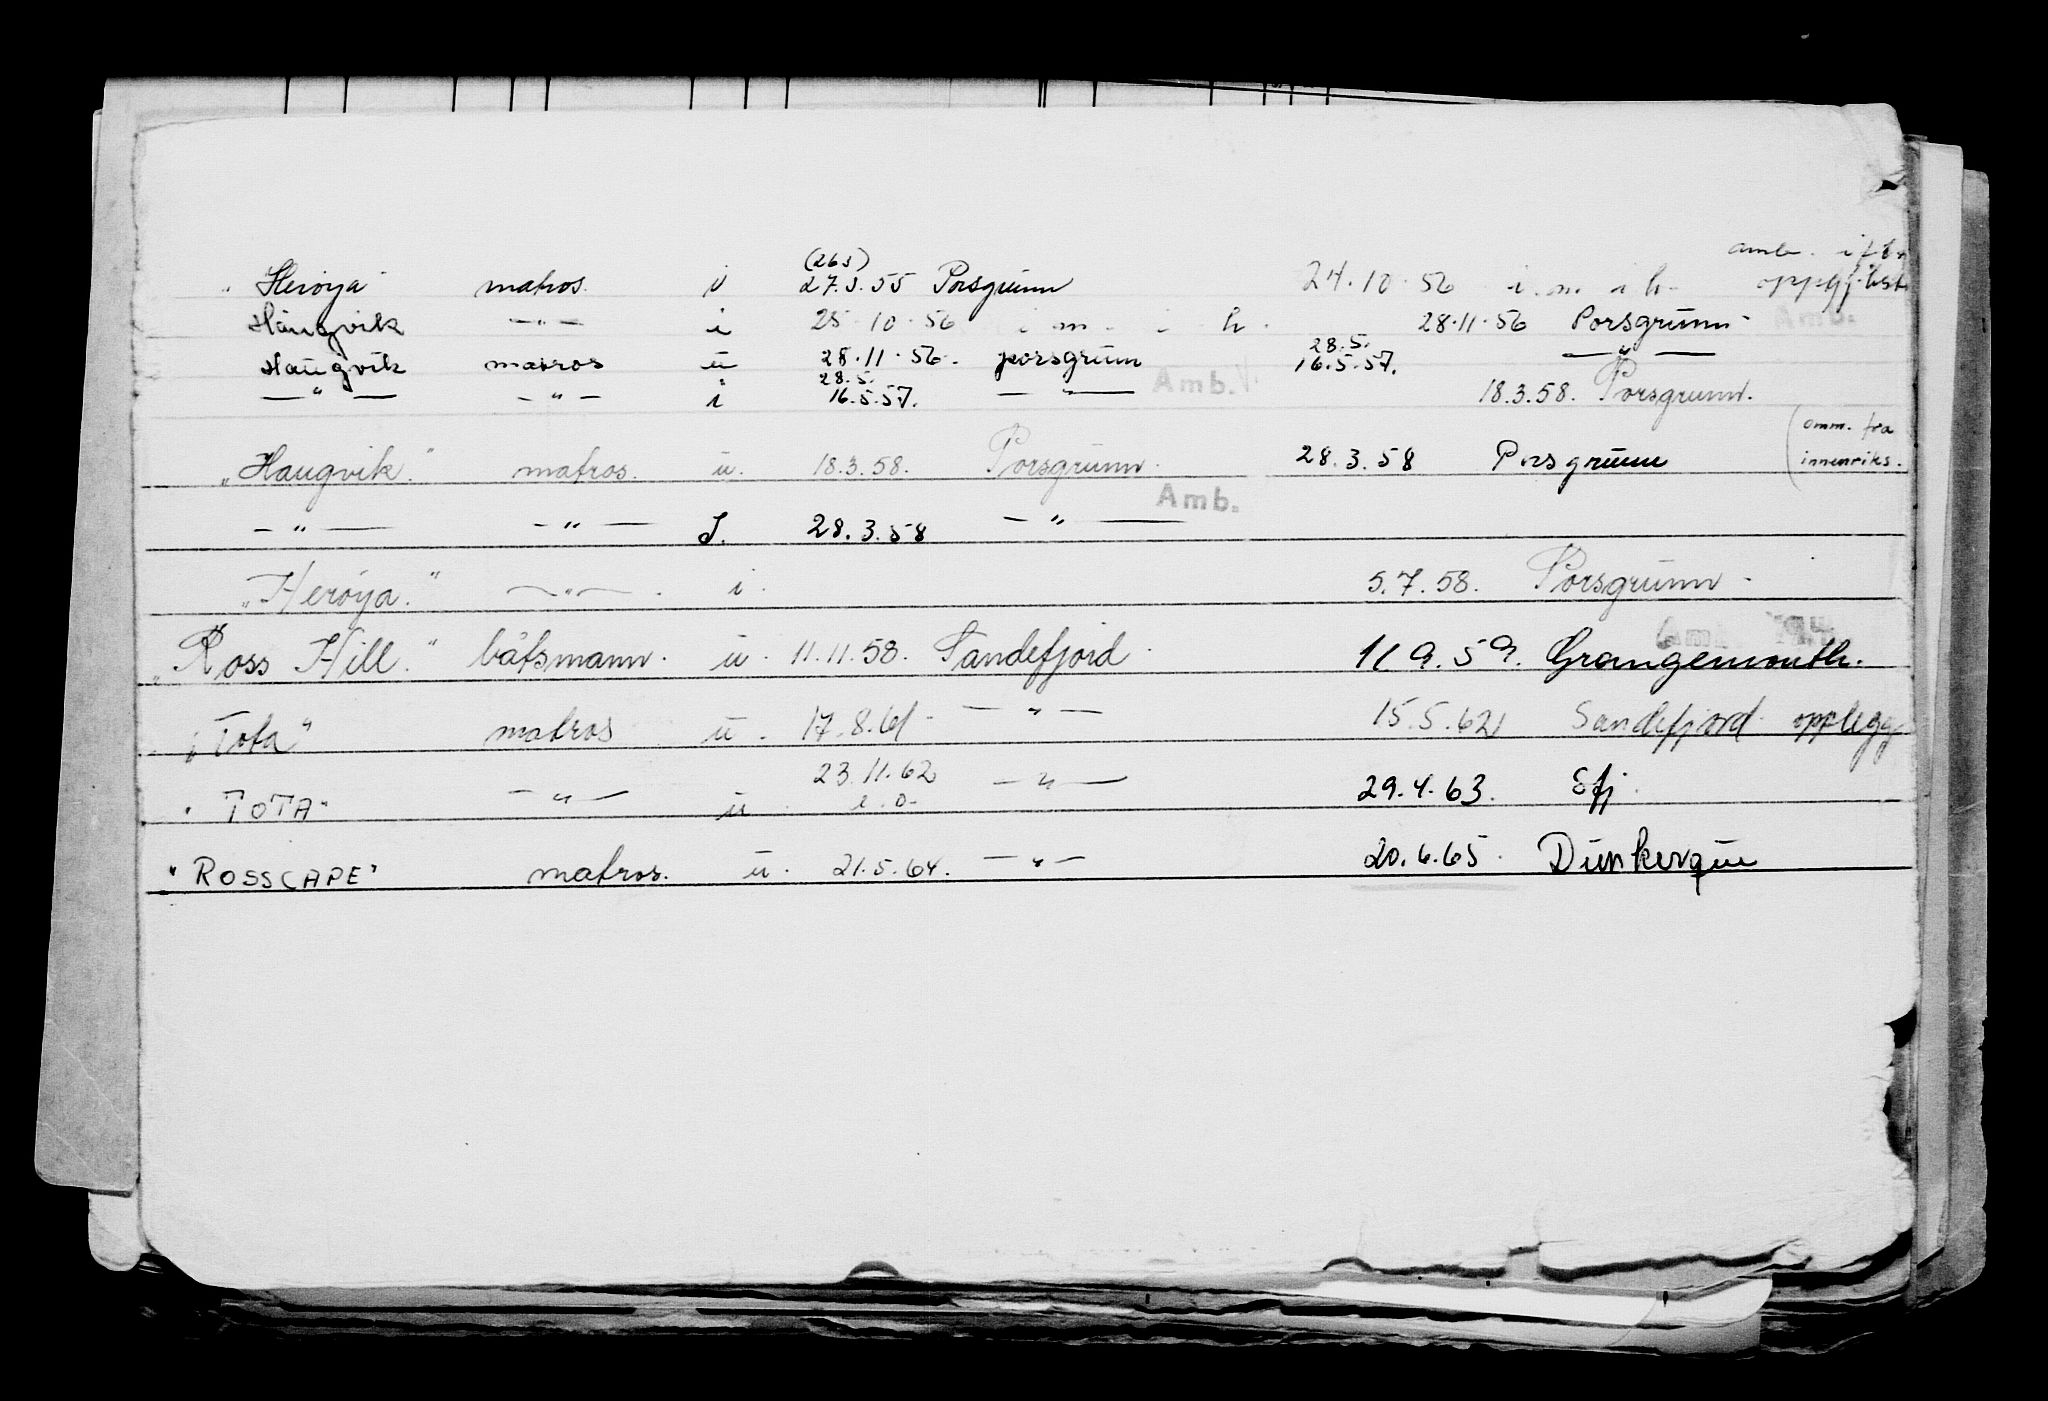 (263) amb.
"Herøya" matros. i 27.3.55 Porsgrunn 24.10.56 i.m.i.h.
Haugvik —"— i 25.10.56 i.m.i.h. 28.11.56 Porsgrunn. Amb.
28.5.
Haugvik matros u 28.11.56. porsgrunn 16.5.57. —"—
28.5. Amb.
—"— —"— i 16.5.57. —"— 18.3.58. Porsgrunn.
"Haugvik." matros. u. 18.3.58. Porsgrunn. 28.3.58 Porsgrunn (omm. fra innenriks.
Amb.
—"— —"— I. 28.3.58 —"—
"Herøya." —"—. i. 5.7.58. Porsgrunn.
"Ross Hill." båtsmann. u. 11.11.58. Sandefjord. 11 9.59. Grangemouth.
"Tota" matros u. 17.8.61. —"— 15.5.62 Sandefjord opplegg
"TOTA" —"— u. 23.11.62 e.o. —"— 29.4.63. Sfj.
"ROSSCAPE" matros. u. 21.5.64. —"— 20.6.65. Dunkerque